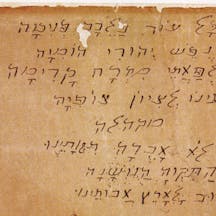 עוד בלבב פנימה
נפש יהודי הומיה
לפאתי מזרח קדימה
לציון צופיה
מקהלה
לא אבדה תקותינו
התקוה הנושנה
לארץ אבותינו